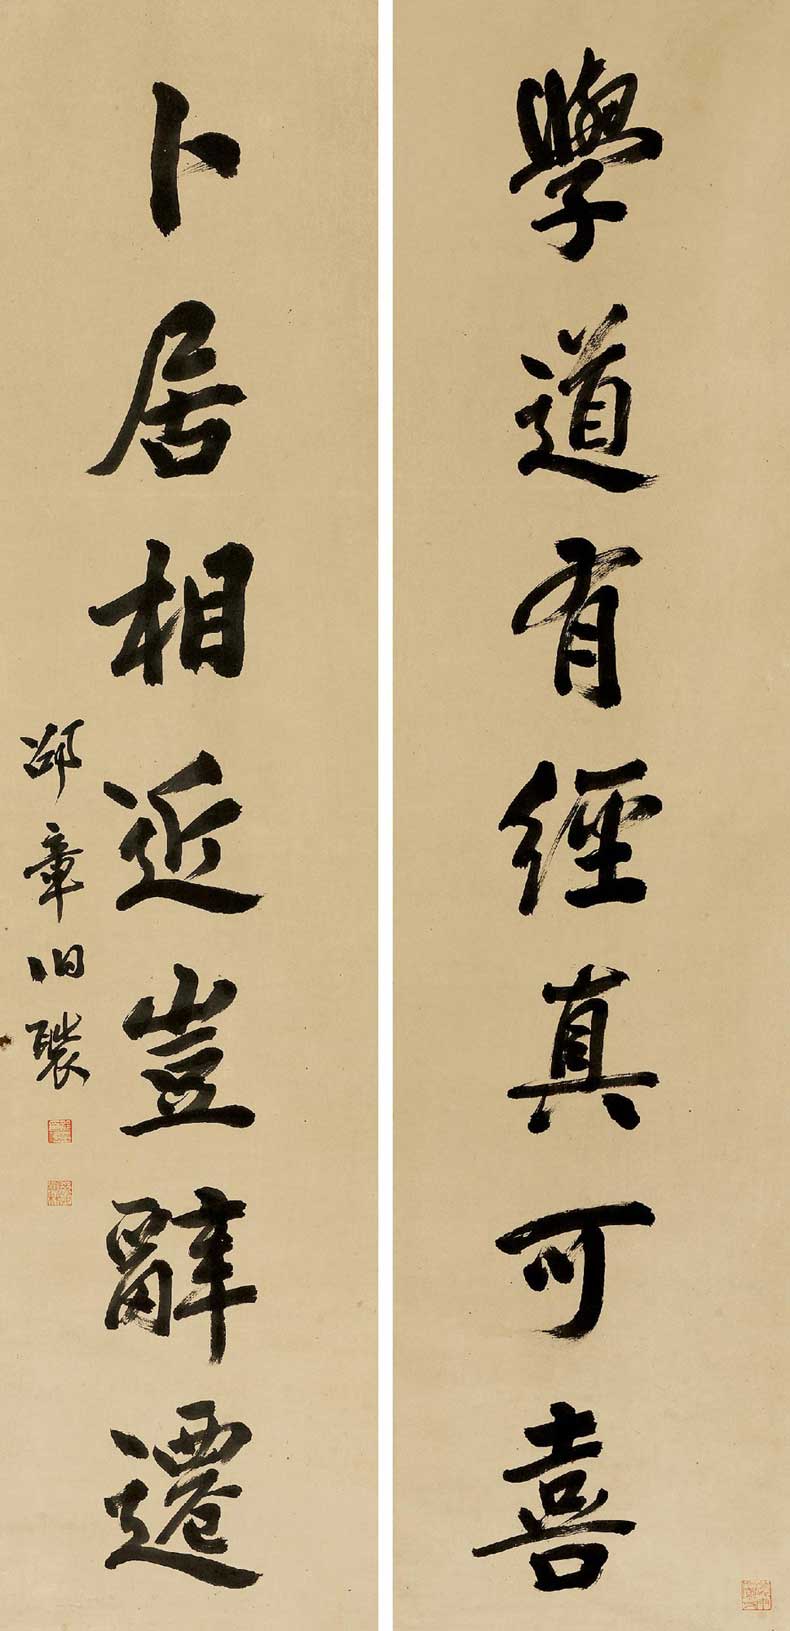 學道有經真可喜
卜居相近豈辭遷
邵章旧製